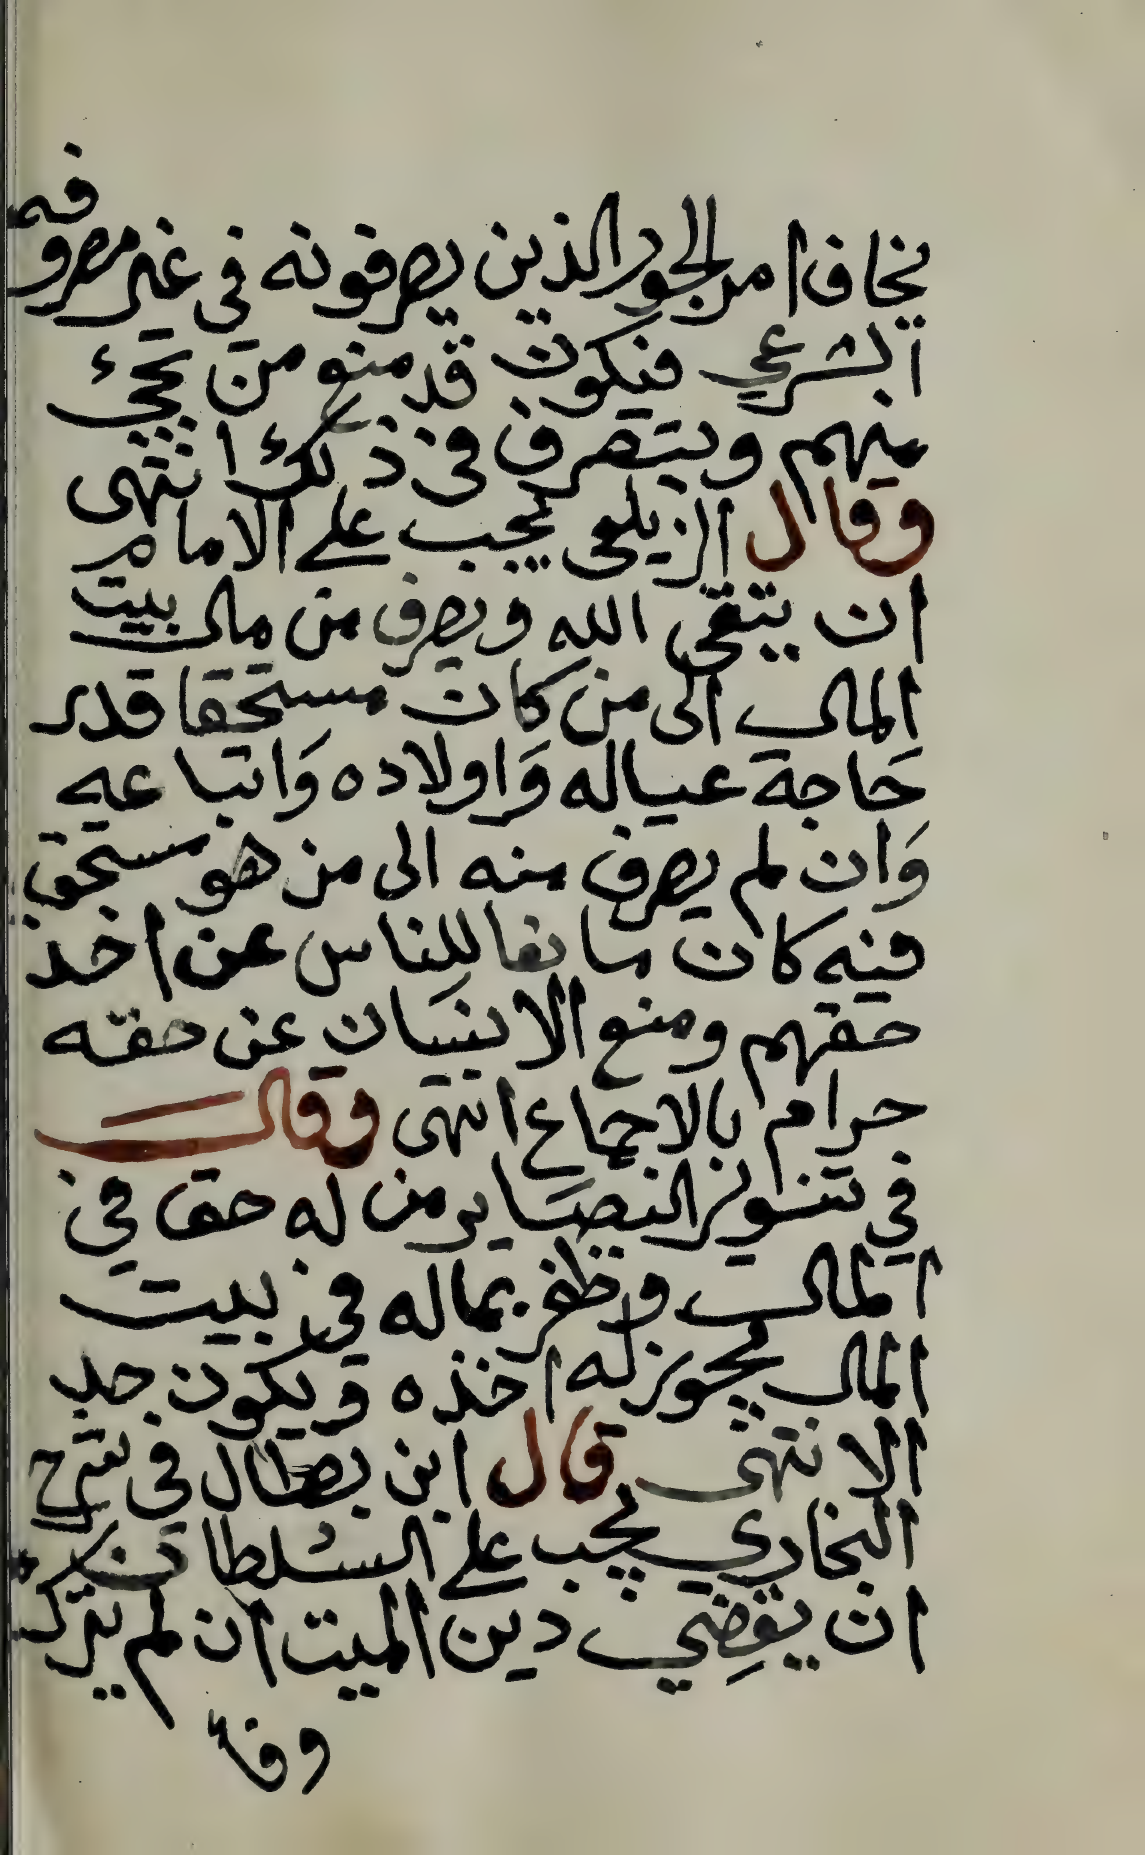 يخاف امر الجور الذين يصرفونه في غير مصروفه
الشرعي فيكون قد منع من يجئ
منهم ويتصرف في ذلك انتهى
وقال الزيلعي يجب على الامام
ان يتقي الله ويصرف من مال بيت
المال الى من كان مستحقا قدر
حاجة عياله واولاده واتباعه
وان لم يصرف منه الى من هو مستحق
فيه كان مانعا للناس عن اخذ
حقهم ومنع الانسان عن حقه
حرام بالاجماع انتهى وقال
في تنوير البصاير من له حق في
المال وظفر بماله في بيت
المال يجوز له اخذه ويكون
الا انتهى قال ابن بطال في شرح
البخاري يجب على السلطان
ان يقضي دين الميت ان لم يترك
وفا